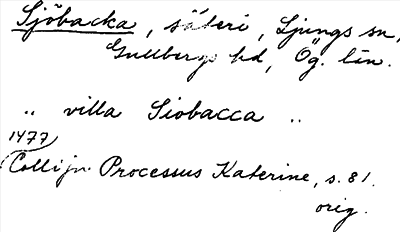 Sjöbacka, säteri, Ljungs sn,
Gullbergs hd, Ög. län.
„ villa Siobacca „
1477
Collijn Processus Katerine, s. 81.
orig.